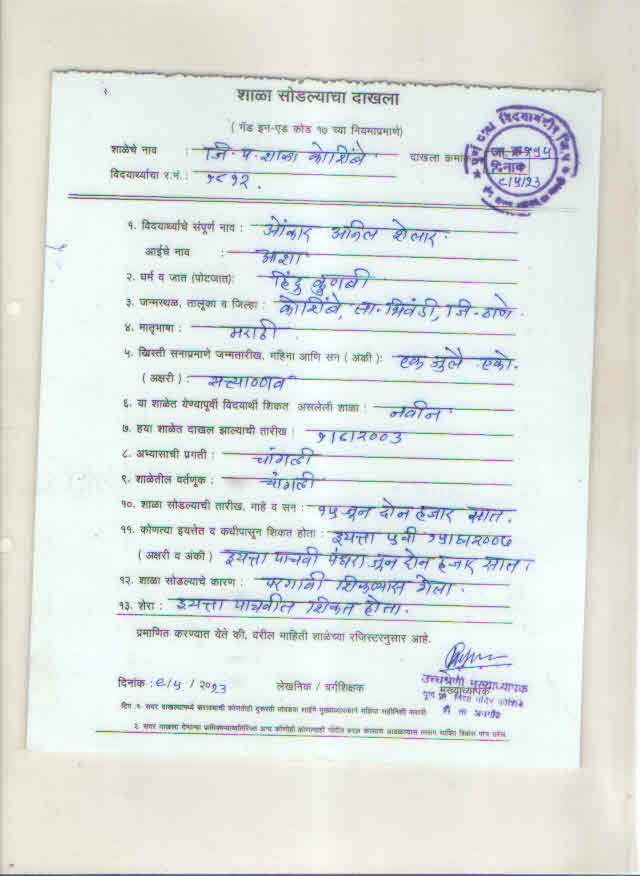 शाळा सोडल्याचा दाखला
( गॅड इन-एड कोड १७ च्या नियमाप्रमाणे)
शाळेचे नाव : जि-प-शाळा कोशिंबे. दाखला क्रमांक जा.क्र १५
विदयार्थ्याचा र.नं.: १८१२. दिनांक ८/५/२३
१. विदयार्थ्याचे संपूर्ण नाव : ओंकार अनिल शेलार.
आईचे नाव : आशा
२. धर्म व जात (पोटजात): हिंदू कुणबी
३. जन्मस्थळ, तालुका व जिल्हा : कोशिंबे, ता-भिवंडी, जि-ठाणे.
४. मातृभाषा : मराठी .
५. ख्रिस्ती सनाप्रमाणे जन्मतारीख, महिना आणि सन ( अंकी ): एक जुलै एको.
( अक्षरी ) : सत्याण्णव
६. या शाळेत येण्यापूर्वी विदयार्थी शिकत असलेली शाळा : नवीन
७. हया शाळेत दाखल झाल्याची तारीख : १/६/२००३
८. अभ्यासाची प्रगती : चांगली
९. शाळेतील वर्तणूक : चांगली
१०. शाळा सोडल्याची तारीख, माहे व सन : १५ जून दोन हजार सात.
११. कोणत्या इयत्तेत व कधीपासून शिकत होता : इयत्ता ५वी १५/६/२००७
( अक्षरी व अंकी ) इयत्ता पाचवी पंधरा जून दोन हजार सात.
१२. शाळा सोडल्याचे कारण : परगावी शिकण्यास गेला.
१३. शेरा : इयत्ता पाचवीत शिकत होता.
प्रमाणित करण्यात येते की, वरील माहिती शाळेच्या रजिस्टरनुसार आहे.
दिनांक : ८/५/२०२३ लेखनिक / वर्गशिक्षक मुख्याध्यापक
उच्चश्रेणी मुख्याध्यापक